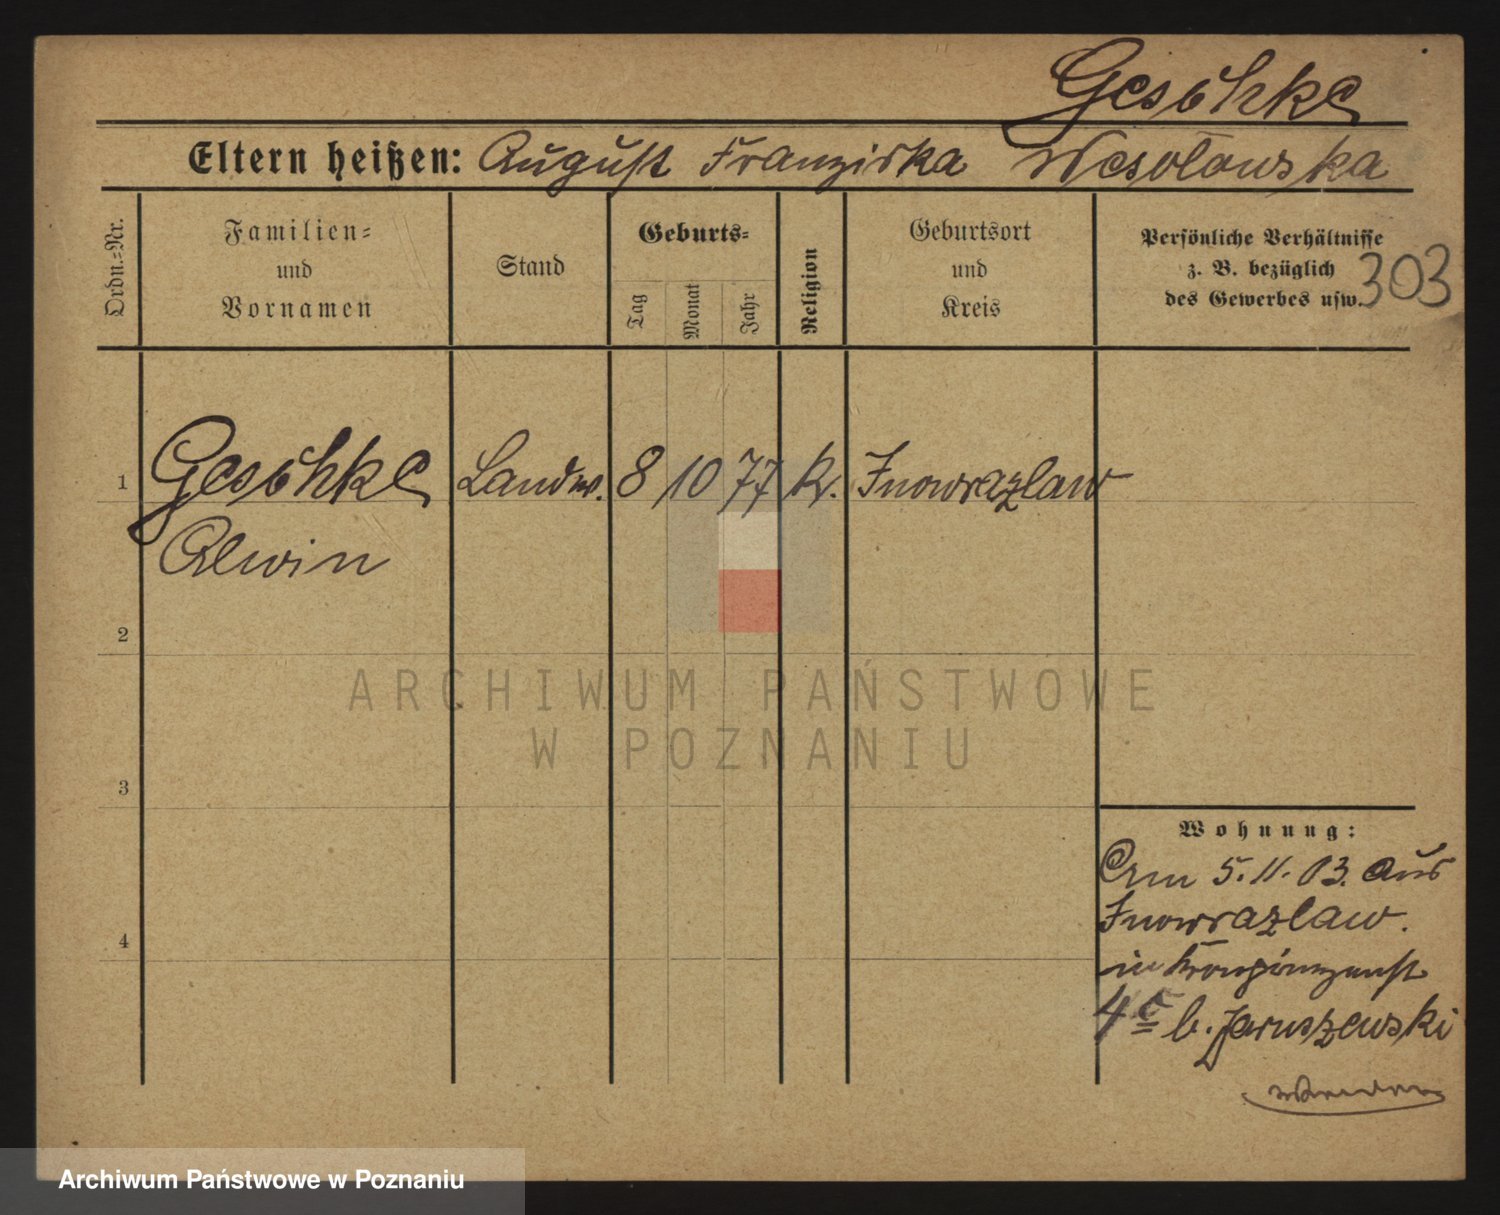 Geschke
Eltern heißen: August Franziska Wesolowska
Ordn.-Nr.
Familien-
und
Vornamen
Stand
Geburts-
Tag
Monat
Jahr
Religion
Geburtsort
und
Kreis
Persönliche Verhältnisse
z. B. bezüglich
des Gewerbes usw.
303
1 Geschke Landw. 8 10 77 K. Inowrazlaw
Alwin
2
3
4
Wohnung:
Am 5.11.03. aus
Inowrazlaw.
in Kronprinzenst
4c b. Jaruszewski
ARCHIWUM PAŃSTWOWE
W POZNANIU
Archiwum Państwowe w Poznaniu